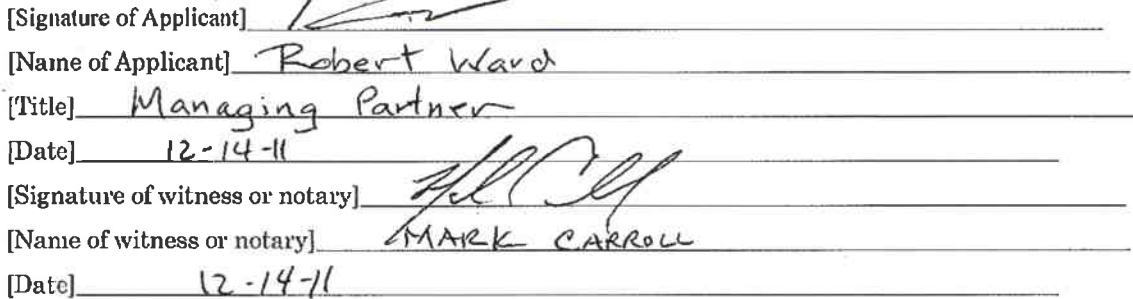 [Signature of Applicant]
[Name of Applicant] Robert Ward
[Title] Managing Partner
[Date] 12-14-11
[Signature of witness or notary]
[Name of witness or notary] MARK CARROLL
[Date] 12-14-11